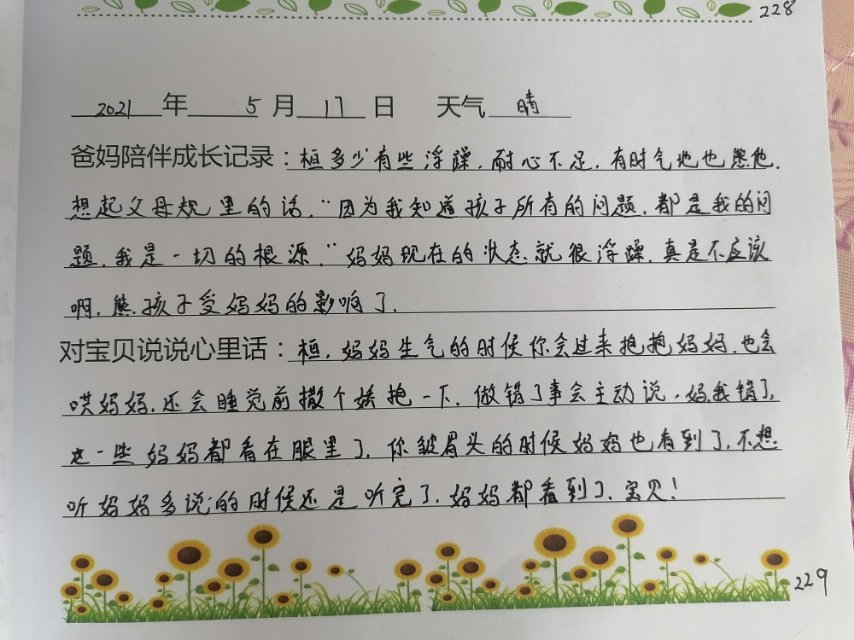 228
2021 年 5 月 17 日 天气 晴
爸妈陪伴成长记录：桓多少有些浮躁，耐心不足，有时气地也想他，
想起父母规里的话，“因为我知道孩子所有的问题，都是我的问
题，我是一切的根源，”妈妈现在的状态就很浮躁，真是不应该
啊，熊孩子受妈妈的影响了，
对宝贝说说心里话：桓，妈妈生气的时候你会过来抱抱妈妈，也会
哄妈妈，还会睡觉前撒个娇抱一下，做错了事会主动说，妈我错了，
这一些妈妈都看在眼里了，你皱眉头的时候妈妈也看到了，不想
听妈妈多说的时候还是听完了，妈妈都看到了，宝贝！
229